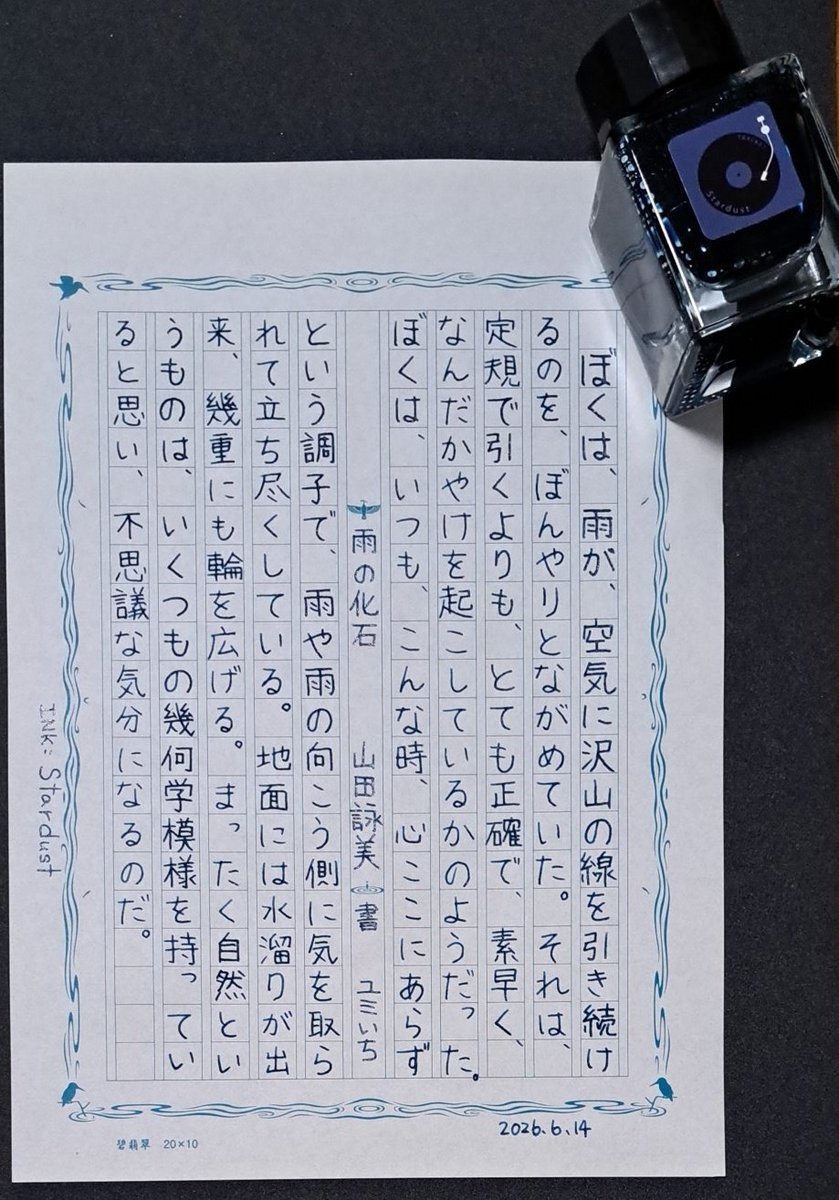 ぼくは、雨が、空気に沢山の線を引き続け
るのを、ぼんやりとながめていた。それは、
定規で引くよりも、とても正確で、素早く、
なんだかやけを起こしているかのようだった。
ぼくは、いつも、こんな時、心ここにあらず
雨の化石 山田詠美 書 ユミいち
という調子で、雨や雨の向こう側に気を取ら
れて立ち尽くしている。地面には水溜りが出
来、幾重にも輪を広げる。まったく自然とい
うものは、いくつもの幾何学模様を持ってい
ると思い、不思議な気分になるのだ。
INK: Stardust
2026.6.14
碧翡翠 20×10
Stardust